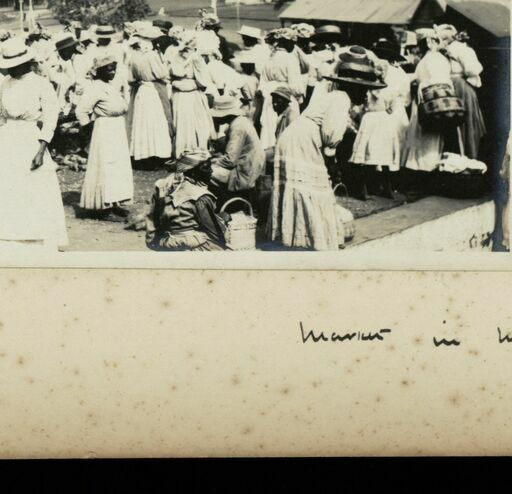 Market in